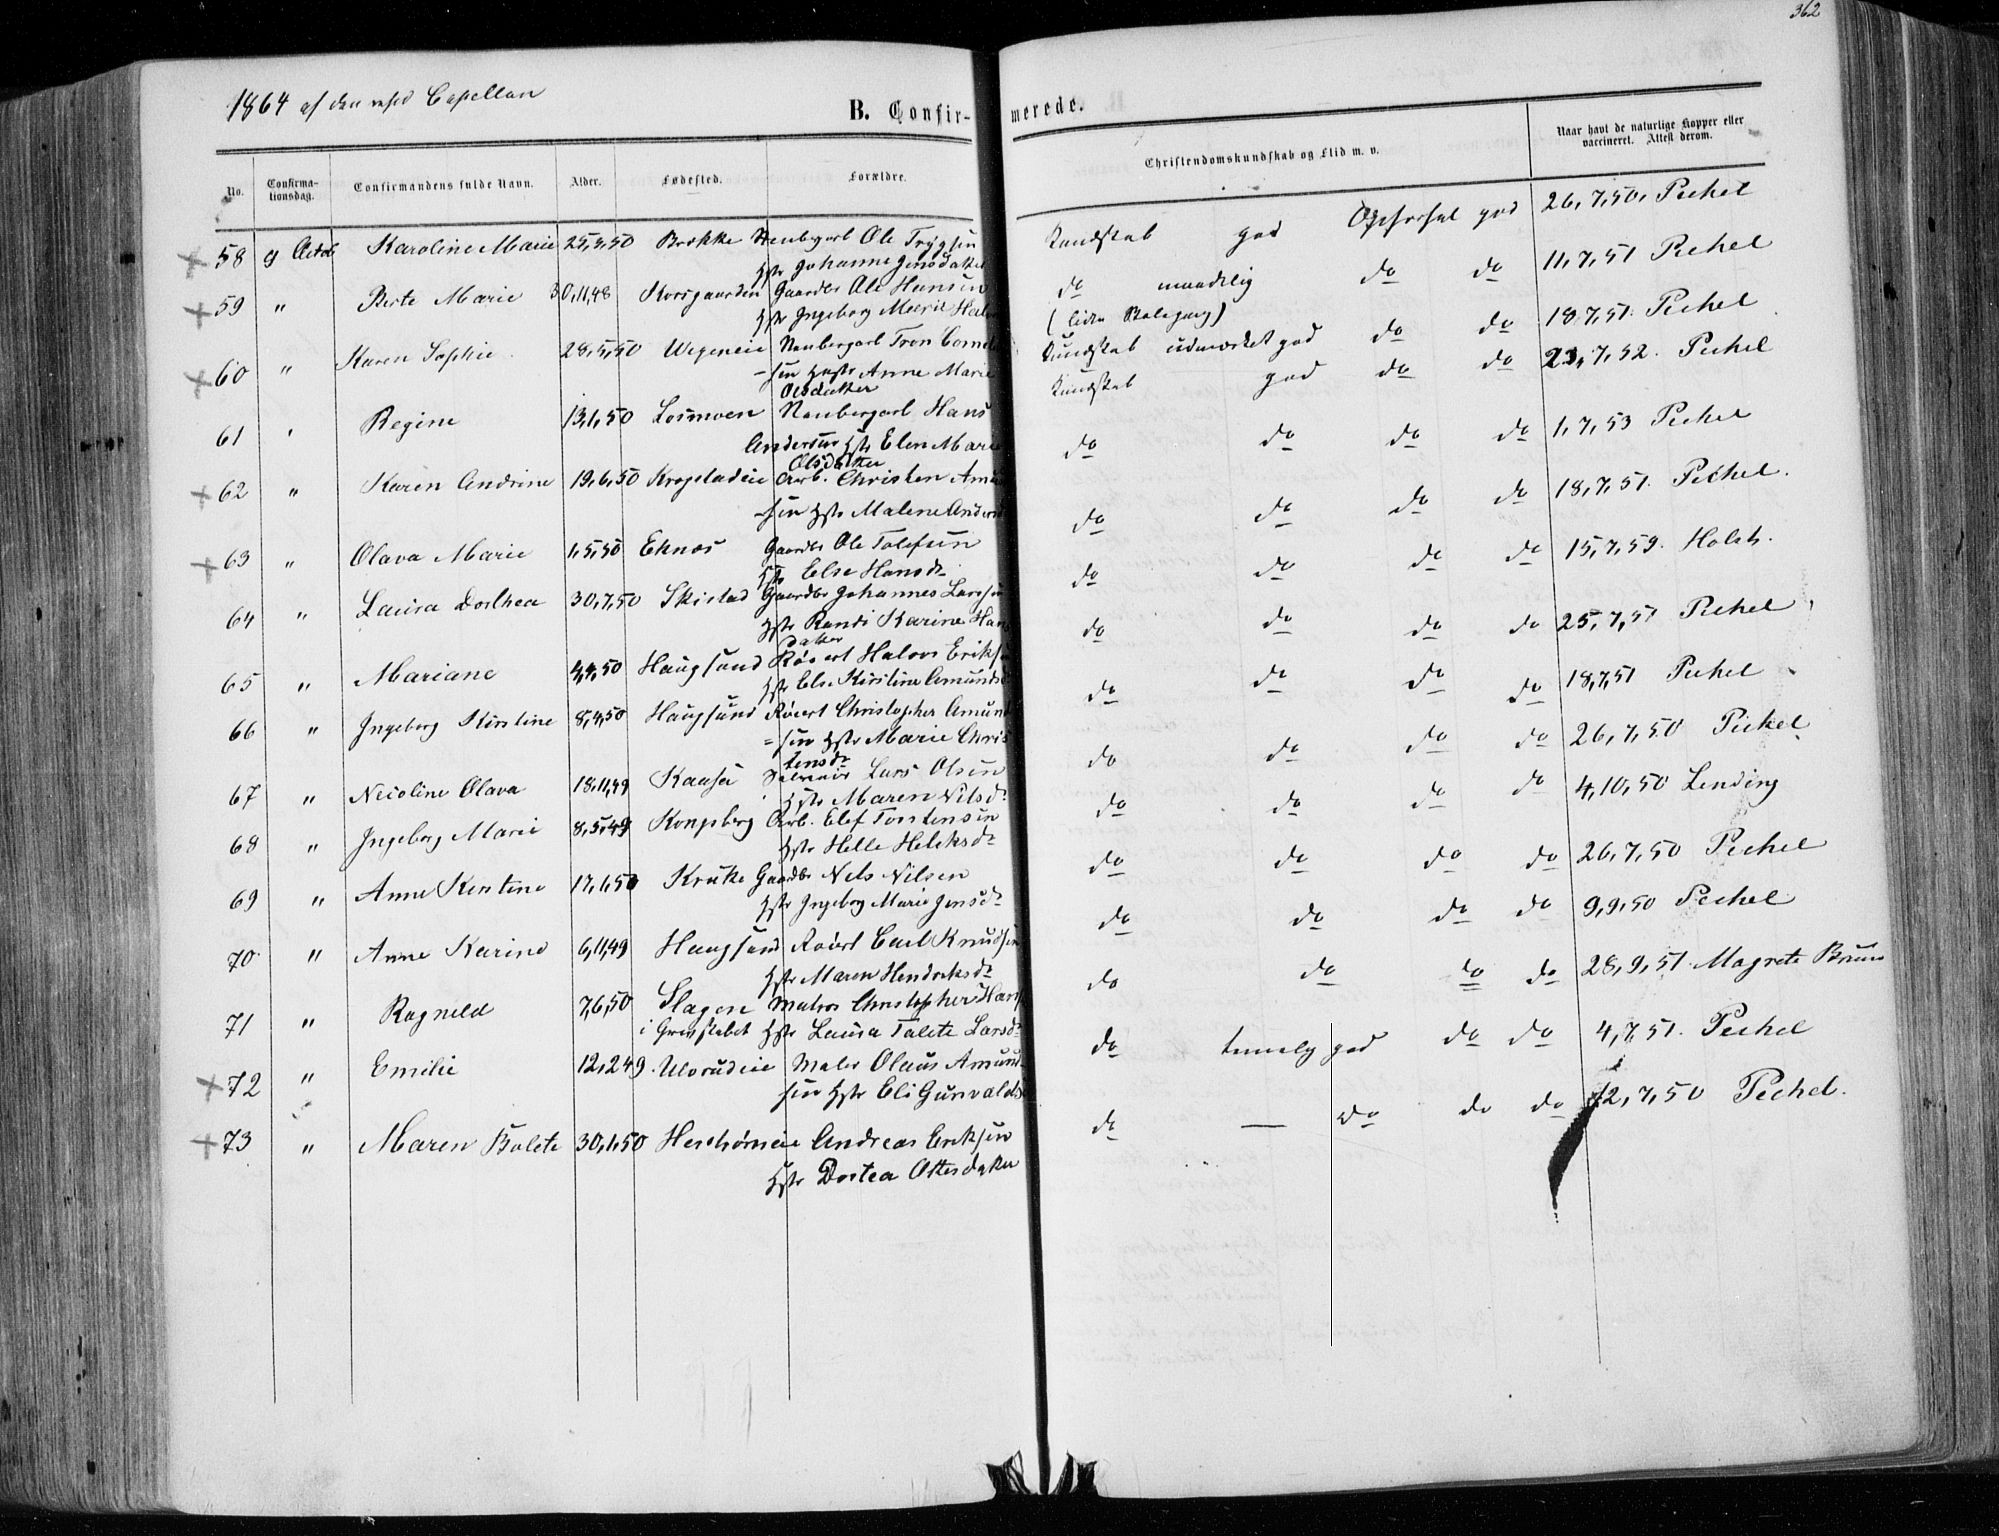 362
1864 af den resd Capellan
B. Confir-
merede.
No.
Confirma-
tionsdag.
Confirmandens fulde Navn.
Alder.
Fødested.
Forældre.
Christendomskundskab og Flid m. v.
Naar havt de naturlige Kopper eller
vaccineret. Attest derom.
58 9 Octob Karoline Marie 25,3,50 Brekke Ole Trygsen Kundskab god Opførsel god 26,7,50, Pechel
Hstr Johanne Jensdatter
59 " Berte Marie 30,11,48 Korsgaarden Gaardbr Ole Hansen do maadelig do do 11,7,51 Pechel
Hstr Ingeborg Marie
60 " Karen Sophie 28,5,50 Wegeneie Tron Corneli Kundskab udmærket god do do 18,7,51. Pechel
-sen Hustr Anne Marie
Olsdatter
61 " Regine 13,1,50 Losmoen Hans Kundskab god do do 23,7,52. Pechel
Andersen Hstr Elen Marie
Olsdatter
62 " Karen Andrine 19,6,50 Krogstadeie Arb. Christen Amund do do do do 1,7,53 Pechel
-sen Hstr Malene Anders
63 " Olava Marie 1,5,50 Eknes Gaardbr Ole Tolefsen do do do do 18,7,51. Pechel.
Hstr Else Hansdr
64 " Laura Dorthea 30,7,50 Skistad Gaardbr Johannes Larssen do do do do 15,7,59. Holst.
Hstr Randi Karine Hans
datter
65 " Mariane 4,4,50 Haugsund Halvor Eriksen do do do do 25,7,51 Pechel
Hstr Else Kirstine Amundsd
66 " Ingeborg Kirstine 8,4,50 Haugsund Christopher Amund do do do do 18,7,51 Pechel
=sen Hstr Marie Chris
tensdr
67 " Nicoline Olava 18,11,49 Kaasa Lars Olsen do do do do 26,7,50 Pechel
Hstr Maren Nilsdr
68 " Ingeborg Marie 8,5,49 Kongsberg Arb. Elef Torstensen do do do do 4,10,50 Lending
Hstr Helle Heleksdr
69 " Anne Kirstine 17,1,50 Kruke Gaardbr Nels Nilsen do do do do 26,7,50 Pechel
Hstr Ingeborg Marie Jensdr
70 " Anne Karine 6,11,49 Haugsund Carl Knudsen do do do do 9,9,50 Pechel
Hstr Maren Hendriksdr
71 " Ragnild 7,6,50 Slagen Matros Christopher Hans do do do do 28,9,51. Magrete Bruun
i Grevskabet Hstr Laura Talete Larsdr
72 " Emilie 12,2,49. Ulvrudeie Maler Olaus Amund do temelig god do do 4,7,51. Pechel
sen Hstr Eli Gunvaldsd
73 " Maren Bolete 30,1,50 Andreas Eriksen do — do do do 12,7,50 Pechel.
Hstr Dortea Ottersdatter
(liden Bolegang)